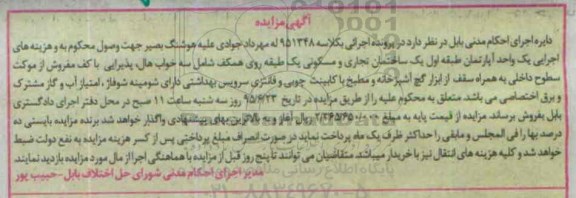 آگهی مزایده
دایره اجرای احکام مدنی بابل در نظر دارد در پرونده اجرائی بکلاسه ۹۵۱۳۴۸ له مهرداد جوادی علیه هوشنگ بصیر جهت وصول محکوم به و هزینه های
اجرایی یک واحد آپارتمان طبقه اول یک ساختمان تجاری و مسکونی یک طبقه روی همکف شامل سه خواب هال، پذیرایی با کف مفروش از موکت
سطوح داخلی به همراه سقف از ابزار گچ آشپزخانه و مطبخ با کابینت چوبی و فانتزی سرویس بهداشتی دارای شومینه شوفاژ، امتیاز آب و گاز مشترک
و برق اختصاصی می باشد. متعلق به محکوم علیه را از طریق مزایده در تاریخ ۹۵/۶/۲۳ روز سه شنبه ساعت ۱۱ صبح در محل دفتر اجرای دادگستری
بابل بفروش برساند. مزایده از قیمت پایه به مبلغ ریال آغاز و به بالاترین بهای پیشنهادی واگذار خواهد شد برنده مزایده بایستی ده
درصد بها را فی المجلس و مابقی را حداکثر ظرف یک ماه پرداخت نماید در صورت انصراف مبلغ پرداختی پس از کسر هزینه مزایده به نفع دولت ضبط
خواهد شد و کلیه هزینه های انتقال نیز با خریدار میباشد. متقاضیان می توانند تا پنج روز قبل از مزایده با هماهنگی اجرا از مال مورد مزایده بازدید نمایند.
مدیر اجرای احکام مدنی شورای حل اختلاف بابل - حبیب پور
پایگاه اطلاع رسانی
۰۲۱-۸۸۳۴۹۶۷۰-۵